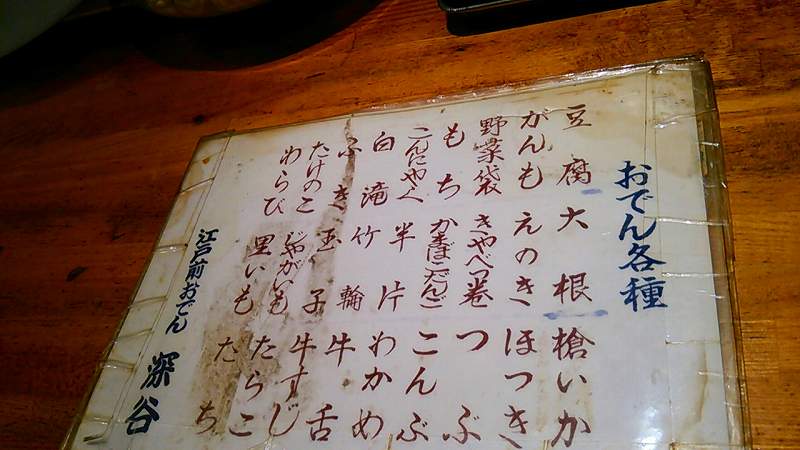 おでん各種
豆腐
大根
槍いか
がんも
えのき
ほっき
野菜袋
きやべつ巻
つぶ
もち
かまぼこだんご
こんぶ
こんにやく
半片
わかめ
白滝
竹輪
牛舌
ふき
玉子
牛すじ
たけのこ
じやがいも
たらこ
わらび
里いも
たち
江戸前おでん 深谷